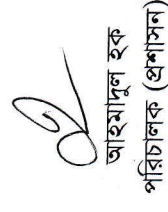 আহমাদুল হক
পরিচালক (প্রশাসন)